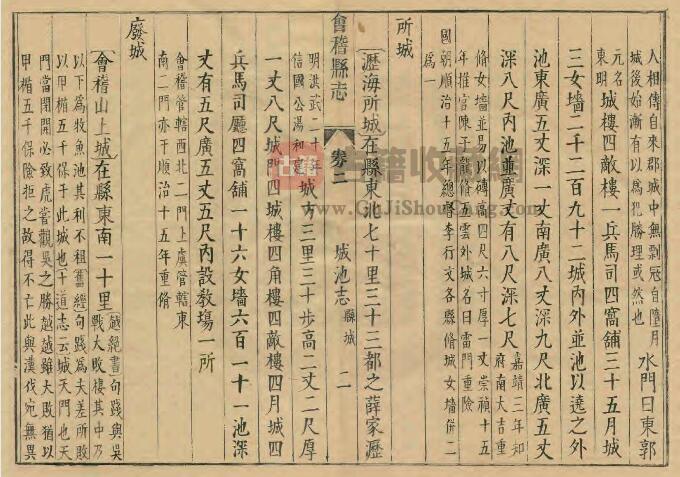 人相傳自來郡城中無剽寇自隍月
城後始漸有以爲犯勝理或然也
水門曰東郭
元名
東明
城樓四敵樓一兵馬司四窩舖三十五月城
三女墻二千二百九十二城內外並池以遶之外
池東廣五丈深一丈南廣八丈深九尺北廣五丈
深八尺內池並廣丈有八尺深七尺
嘉靖三年知
府南大吉重
脩女墻並易以磚高四尺六寸厚一丈崇禎十五
年推官陳子龍脩五雲外城名曰雷門重險
國朝順治十五年總督李行文各縣脩城女墻併二
爲一
所城
瀝海所城在縣東北七十里三十三都之薛家瀝
會稽縣志
卷二
城池志
縣城
二
明洪武二十年
信國公湯和建
城方三里三十步高二丈二尺厚
一丈八尺城門四城樓四角樓四敵樓四月城四
兵馬司廳四窩舖一十六女墻六百一十一池深
丈有五尺廣五丈五尺內設教場一所
會稽管轄西北二門上虞管轄東
南二門亦于順治十五年重脩
廢城
會稽山上城在縣東南一十里
越絕書句踐與吳
戰大敗棲其中乃
以下爲牧魚池其利不租舊經句踐爲夫差所敗
以甲楯五千保于此城也十道志云城天門也天
門當閉開必致虎嘗觀吳之勝越越雖大敗猶以
甲楯五千保險拒之故得不亡此與漢伐宛無異
古籍收藏網
www.GuJiShouCang.com